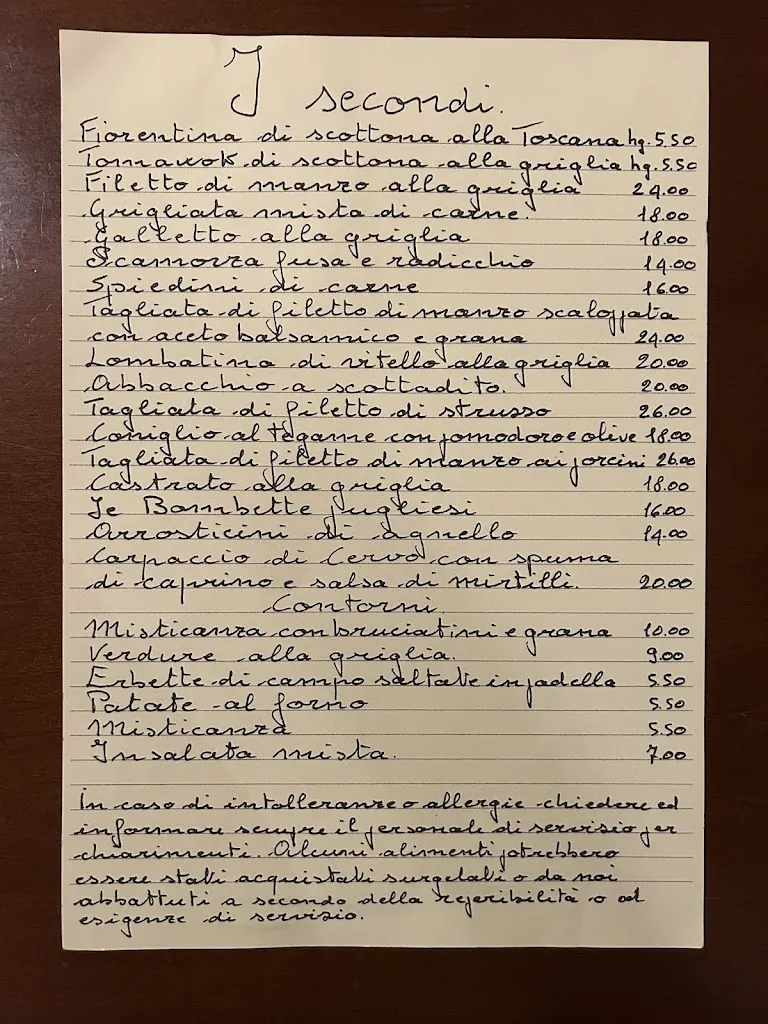 I secondi.
Fiorentina di scottona alla Toscana hg. 5.50
Tomawok di scottona alla griglia hg. 5.50
Filetto di manzo alla griglia 24.00
Grigliata mista di carne. 18.00
Galletto alla griglia 18.00
Scamorza fusa e radicchio 14.00
Spiedini di carne 16.00
Tagliata di filetto di manzo scaloppata
con aceto balsamico e grana 24.00
Lombatina di vitello alla griglia 20.00
Abbacchio a scottadito. 20.00
Tagliata di filetto di struzzo 26.00
Coniglio al tegame con pomodoro e olive 18.00
Tagliata di filetto di manzo ai porcini 26.00
Castrato alla griglia 18.00
Le Bombette pugliesi 16.00
Arrosticini di agnello 14.00
Carpaccio di Cervo con spuma
di caprino e salsa di mirtilli. 20.00
Contorni.
Misticanza con bruciatini e grana 10.00
Verdure alla griglia. 9.00
Erbette di campo saltate in padella 5.50
Patate al forno 5.50
Misticanza 5.50
Insalata mista. 7.00
In caso di intolleranze o allergie chiedere ed
informare sempre il personale di servizio per
chiarimenti. Alcuni alimenti potrebbero
essere stati acquistati surgelati o da noi
abbattuti a secondo della reperibilità o ad
esigenze di servizio.